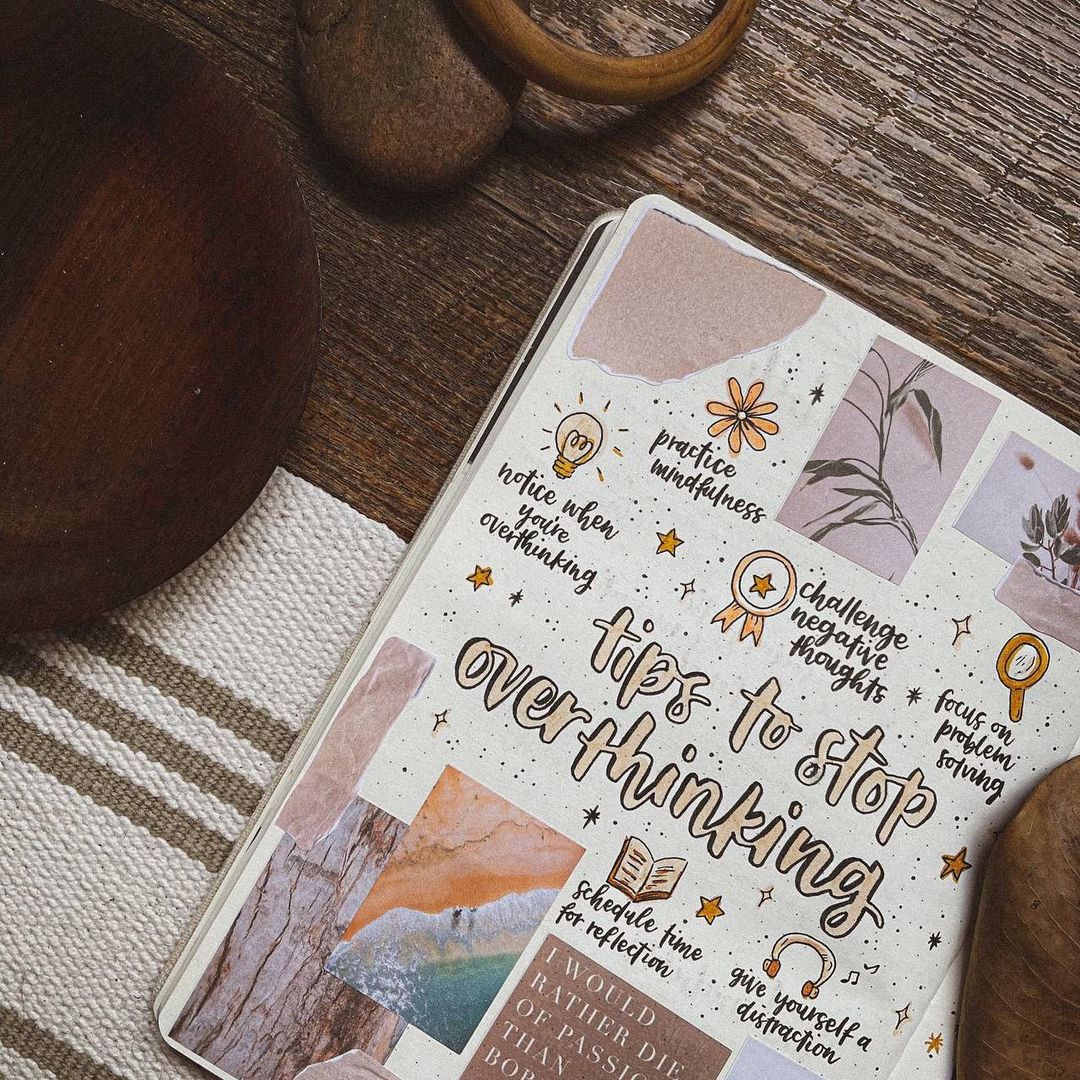 notice when
you're
overthinking
practice
mindfulness
challenge
negative
thoughts
focus on
problem
solving
tips to stop
overthinking
schedule time
for reflection
give yourself a
distraction
I WOULD
RATHER DIE
OF PASSION
THAN